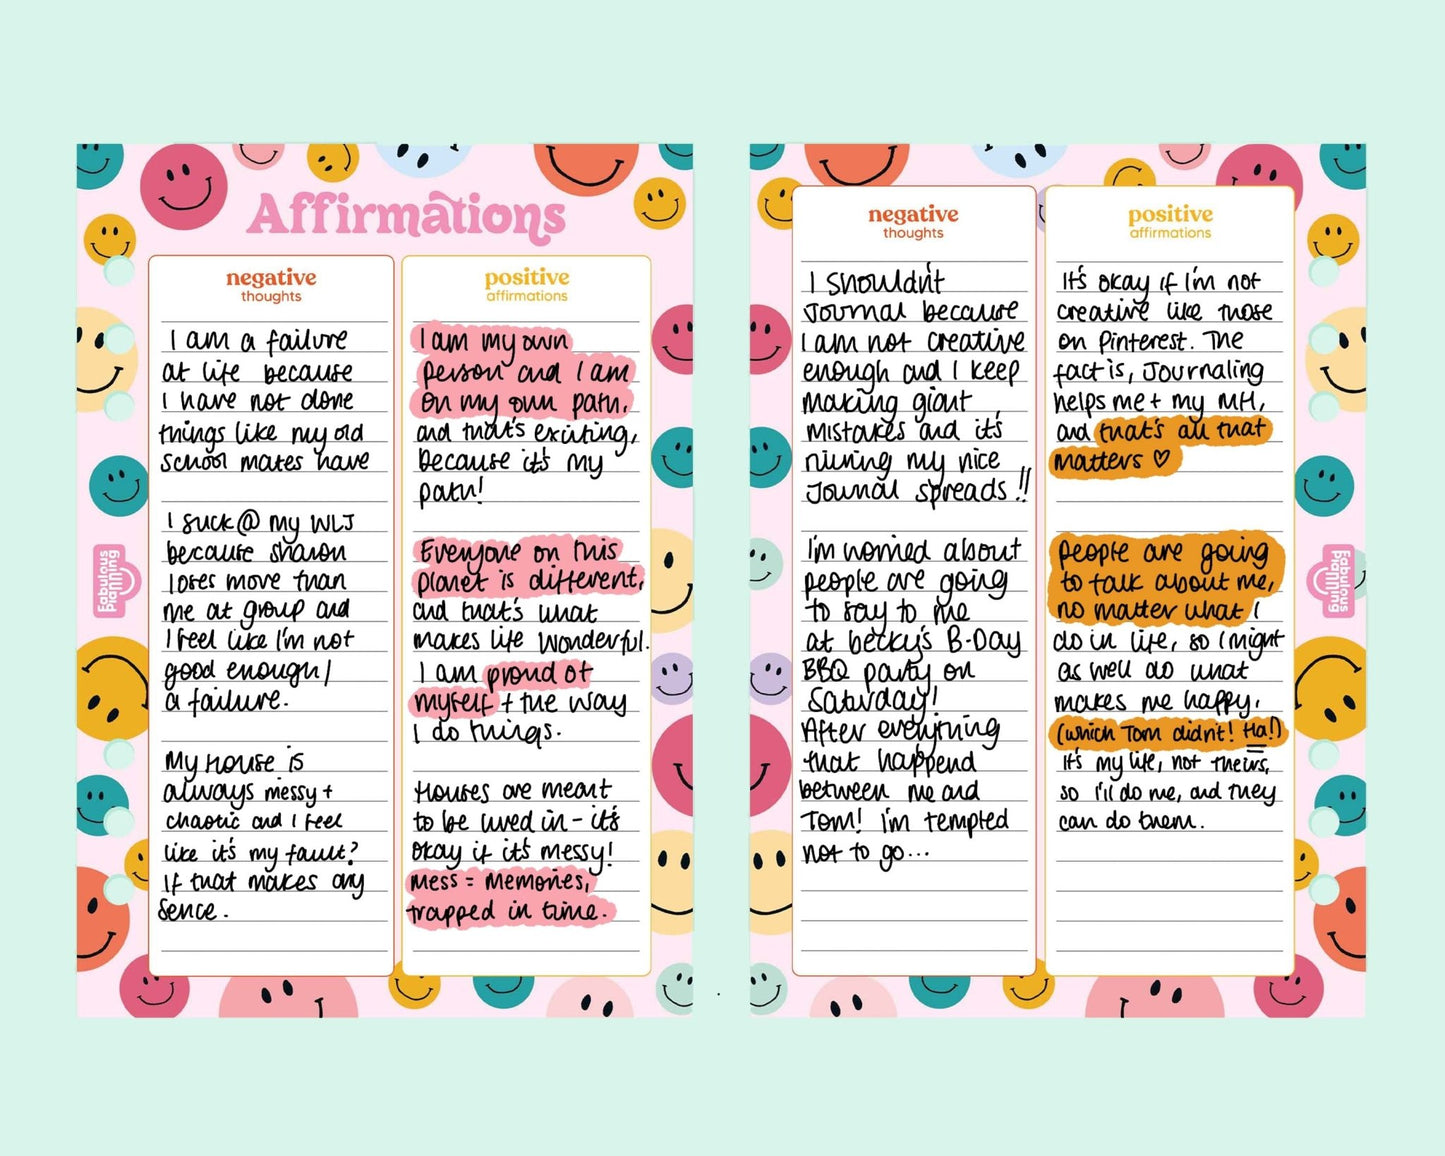 Affirmations
negative
thoughts
I am a failure
at life because
I have not done
things like my old
school mates have
I suck @ my WLJ
because sharon
loses more than
me at group and
I feel like I'm not
good enough /
a failure.
My House is
always messy +
chaotic and I feel
like it's my fault?
If that makes any
sence.
positive
affirmations
I am my own
person and I am
on my own path,
and that's exciting,
because it's my
path!
Everyone on this
planet is different,
and that's what
makes life wonderful.
I am proud of
myself + the way
I do things.
Houses are meant
to be lived in - it's
okay if it's messy!
Mess = Memories,
trapped in time.
Fabulous
Planning
negative
thoughts
I shouldn't
Journal because
I am not creative
enough and I keep
making giant
mistakes and it's
ruining my nice
Journal spreads!!
I'm worried about
people are going
to say to me
at becky's B-Day
BBQ party on
Saturday!
After everything
that happend
between me and
Tom! I'm tempted
not to go...
positive
affirmations
It's okay if I'm not
creative like those
on Pinterest. The
fact is, Journaling
helps me + my MH,
and that's all that
matters ♡
People are going
to talk about me,
no matter what I
do in life, so I might
as well do what
makes me happy.
(which Tom didn't! Ha!)
It's my life, not theirs,
so I'll do me, and they
can do them.
Fabulous
Planning